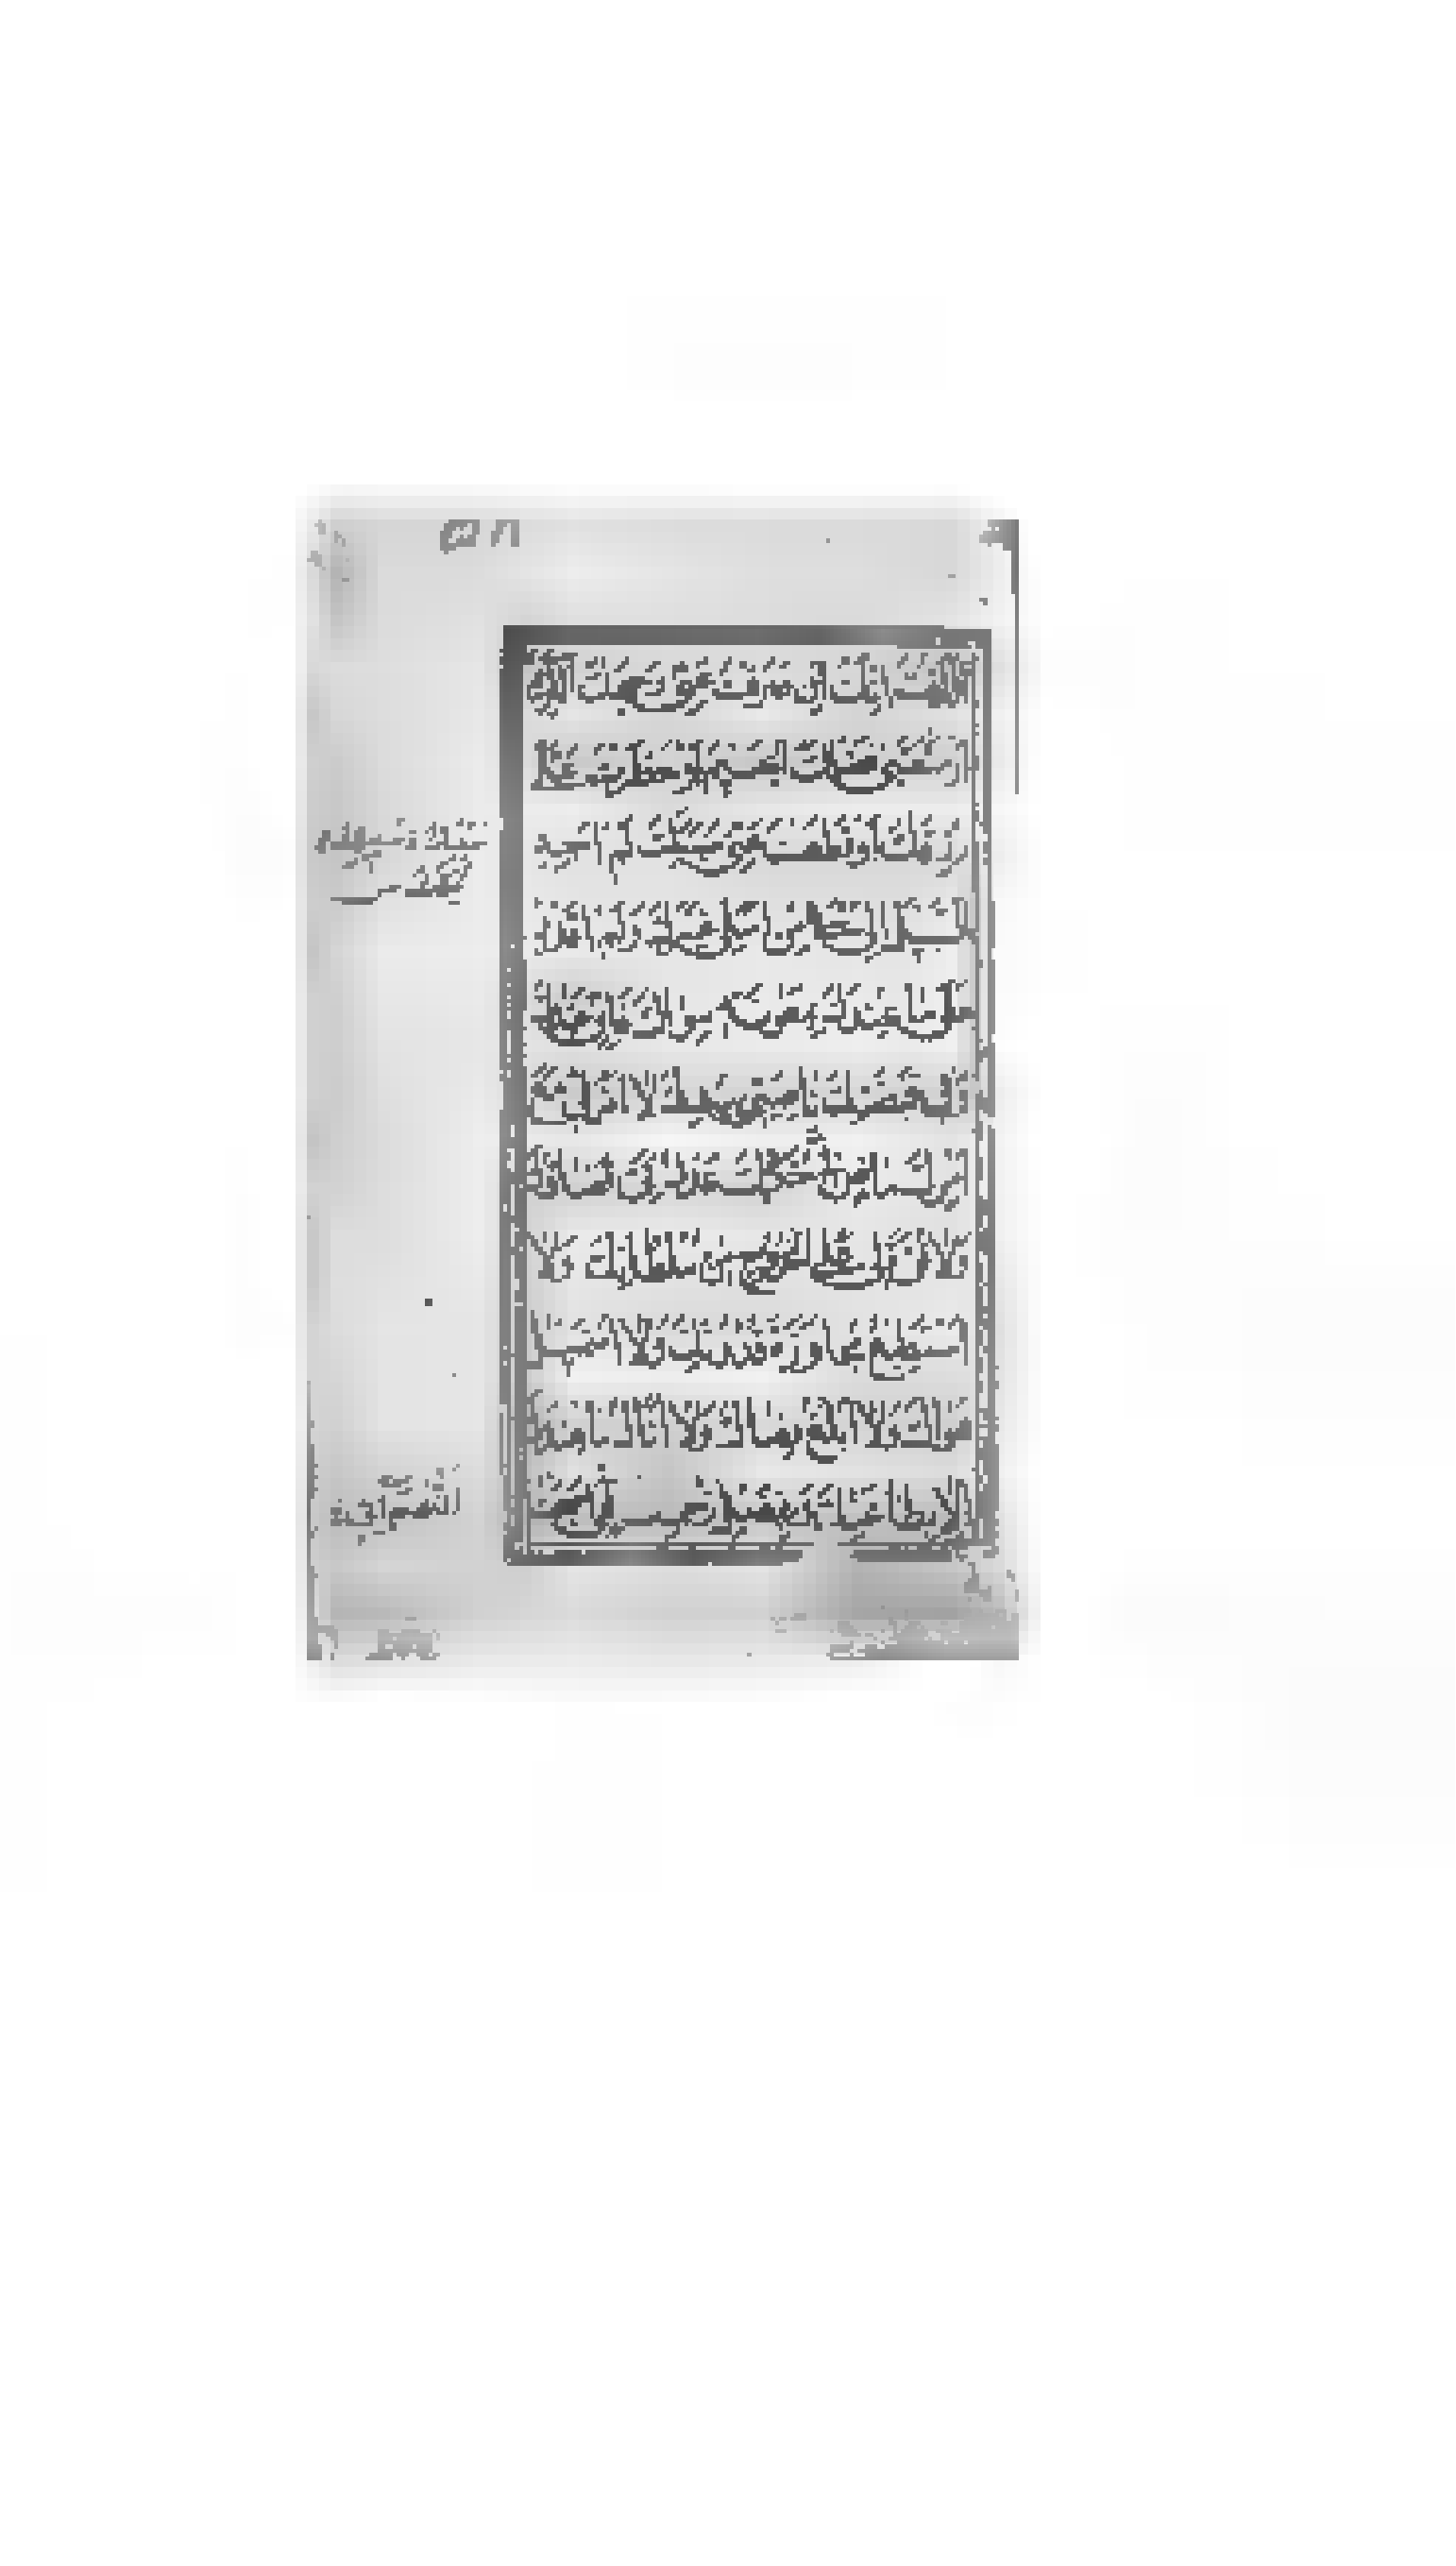 اللهم انك ان صرفت عنى وجهك الكريم
او منعتنى فضلك الجسيم او حظرت على
رزقك او قطعت عنى سببك لم اجد
السبيل الى من املى غيرك ولم اقدر
على ما عندك بمعونة سواك فانى عبدك
وفى قبضتك ناصيتى بيدك لا امر لى مع
امرك ماض فى حكمك عدل فى قضاؤك
ولا قوة لى على الخروج من سلطانك ولا
استطيع مجاوزة قدرتك ولا استميل
هواك ولا ابلغ رضاك ولا انال ما عندك
الا بطاعتك وبفضل رحمتك الهى اصبحت